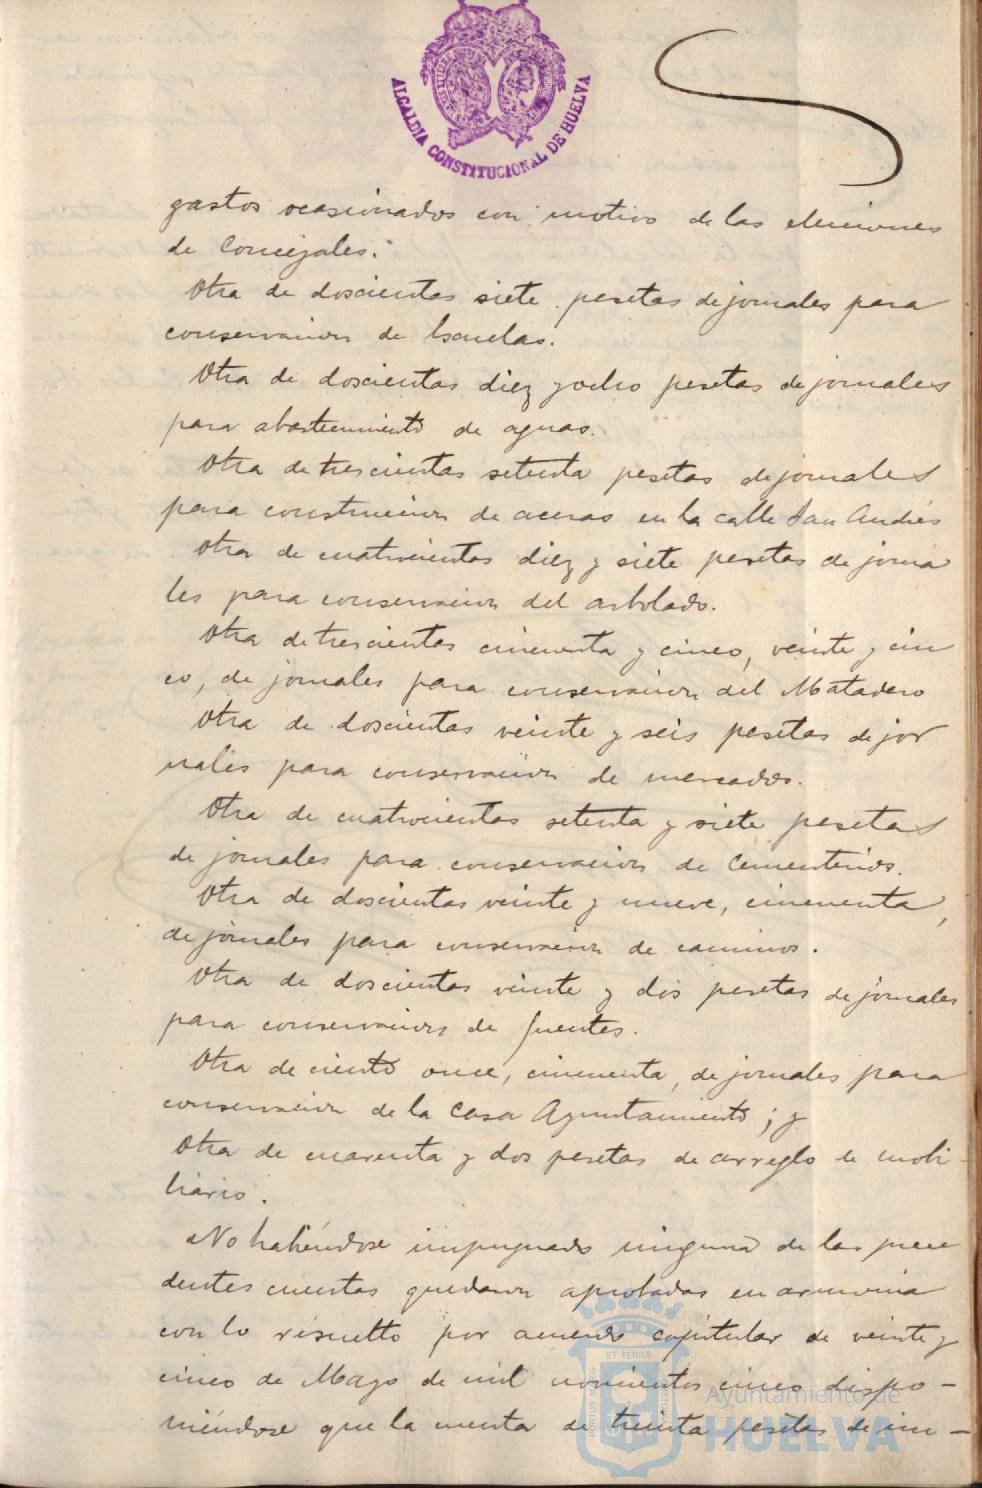 ALCALDIA CONSTITUCIONAL DE HUELVA
gastos ocasionados con motivo de las elecciones
de Concejales.
Otra de doscientas siete pesetas de jornales para
conservacion de Escuelas.
Otra de doscientas diez y ocho pesetas de jornales
para abastecimiento de aguas.
Otra de trescientas setenta pesetas de jornales
para construccion de aceras en la calle San Andrés
Otra de cuatrocientas diez y siete pesetas de jorna
les para conservacion del arbolado.
Otra de trescientas cincuenta y cinco, veinte y cin
co, de jornales para conservacion del Matadero
Otra de doscientas veinte y seis pesetas de jor
nales para conservacion de mercados.
Otra de cuatrocientas setenta y siete pesetas
de jornales para conservacion de Cementerios.
Otra de doscientas veinte y nueve, cincuenta,
de jornales para conservacion de caminos.
Otra de doscientas veinte y dos pesetas de jornales
para conservacion de fuentes.
Otra de ciento once, cincuenta, de jornales para
conservacion de la Casa Ayuntamiento; y
Otra de cuarenta y dos pesetas de arreglo de mobi-
liario.
No habiéndose impugnado ninguna de las prece
dentes cuentas quedaron aprobadas en armonia
con lo resuelto por acuerdo capitular de veinte y
cinco de Mayo de mil novecientos cinco dispo-
niéndose que la cuenta de treinta pesetas de im-
PORTUS MARIS ET TERRÆ CUSTODIA
Ayuntamiento de
HUELVA